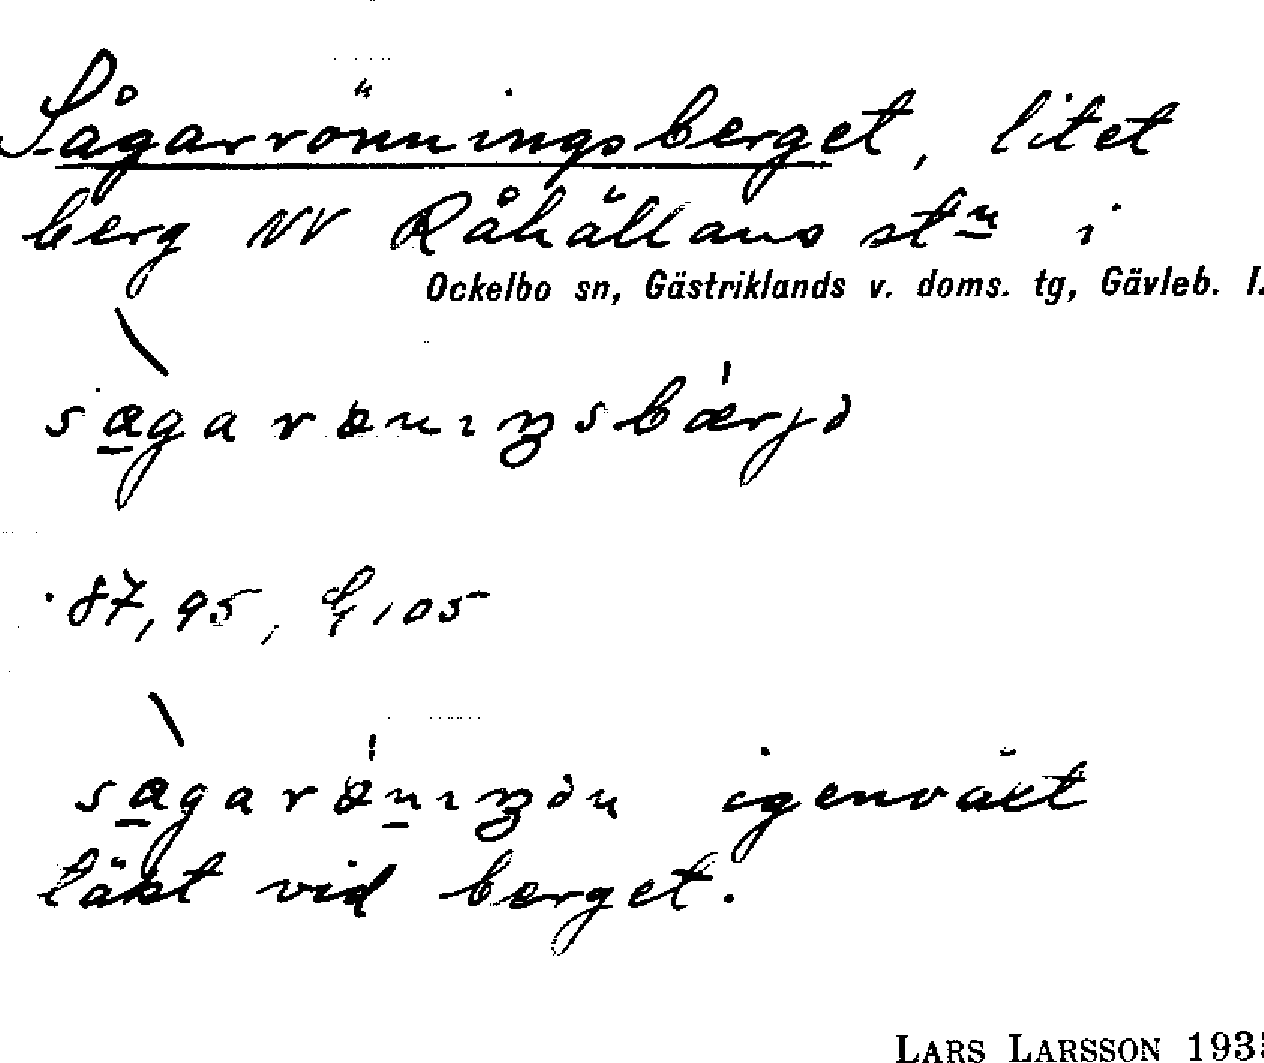 Sågarrönningsberget, litet
berg NV Råhällans stn i
Ockelbo sn, Gästriklands v. doms. tg, Gävleb. l.
sagarønıŋsbærjə
87, 95, G, 105
sagarønıŋən igenväxt
täkt vid berget.
LARS LARSSON 193